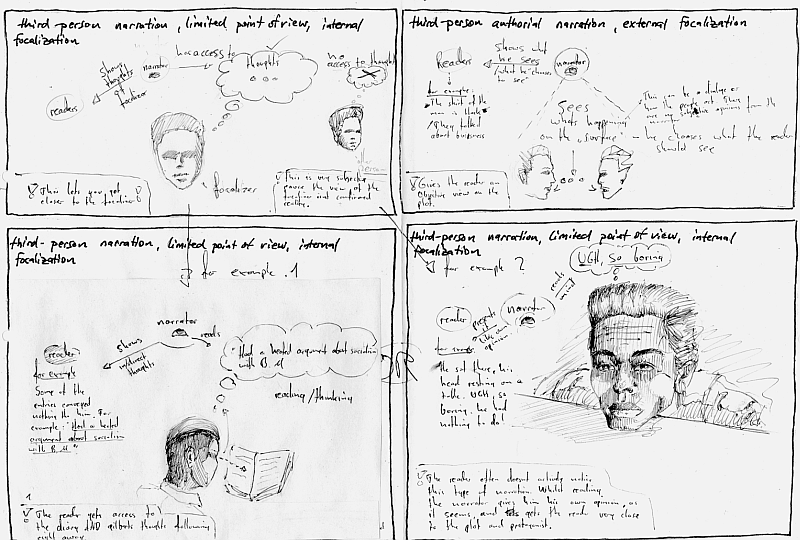 third-person narration, limited point of view, internal
focalization
has access to
thoughts
no
access to thoughts
narrator
Shows
thoughts
of
focalizer
readers
focalizer
other
person
This lets you get
closer to the focalizer
This is very subjective
the view of the
focalizer isnt confirmed
reality.
third-person authorial narration, external focalization
Readers
Shows what
he sees
/what he "chooses
to see"
narrator
for example:
The shirt of the
man is black
/They talked
about bussiness
Sees
whats happening
on the surface
This can be a dialoge or
how the people act. There
are no subjective opinions from the
narrator
he chooses what the reader
should see
Gives the reader an
Objective view on the
plot.
third-person narration, limited point of view, internal
focalization
for example 1
narrator
reads
shows
indirect
thoughts
reader
for example
Some of the
entries conveyed
nothing to him. For
example: "Had a heated
argument about socialism
with B.M."
Had a heated argument about socialism
with B.M
reading/thinking
1
The reader gets access to
the diary AND gilberts thoughts following
right away.
third-person narration, limited point of view, internal
focalization
for example 2
UGH, so boring
reads
mind
narrator
reader
presents
it
like own
opinion
He sat there, his
head resting on a
table. UGH, so
boring. he had
nothing to do.
The reader often doesnt actively notice
this type of narration. Whilst reading,
the narrator gives him his own opinion, as
it seems, and gets the reader very close
to the plot and protagonist.